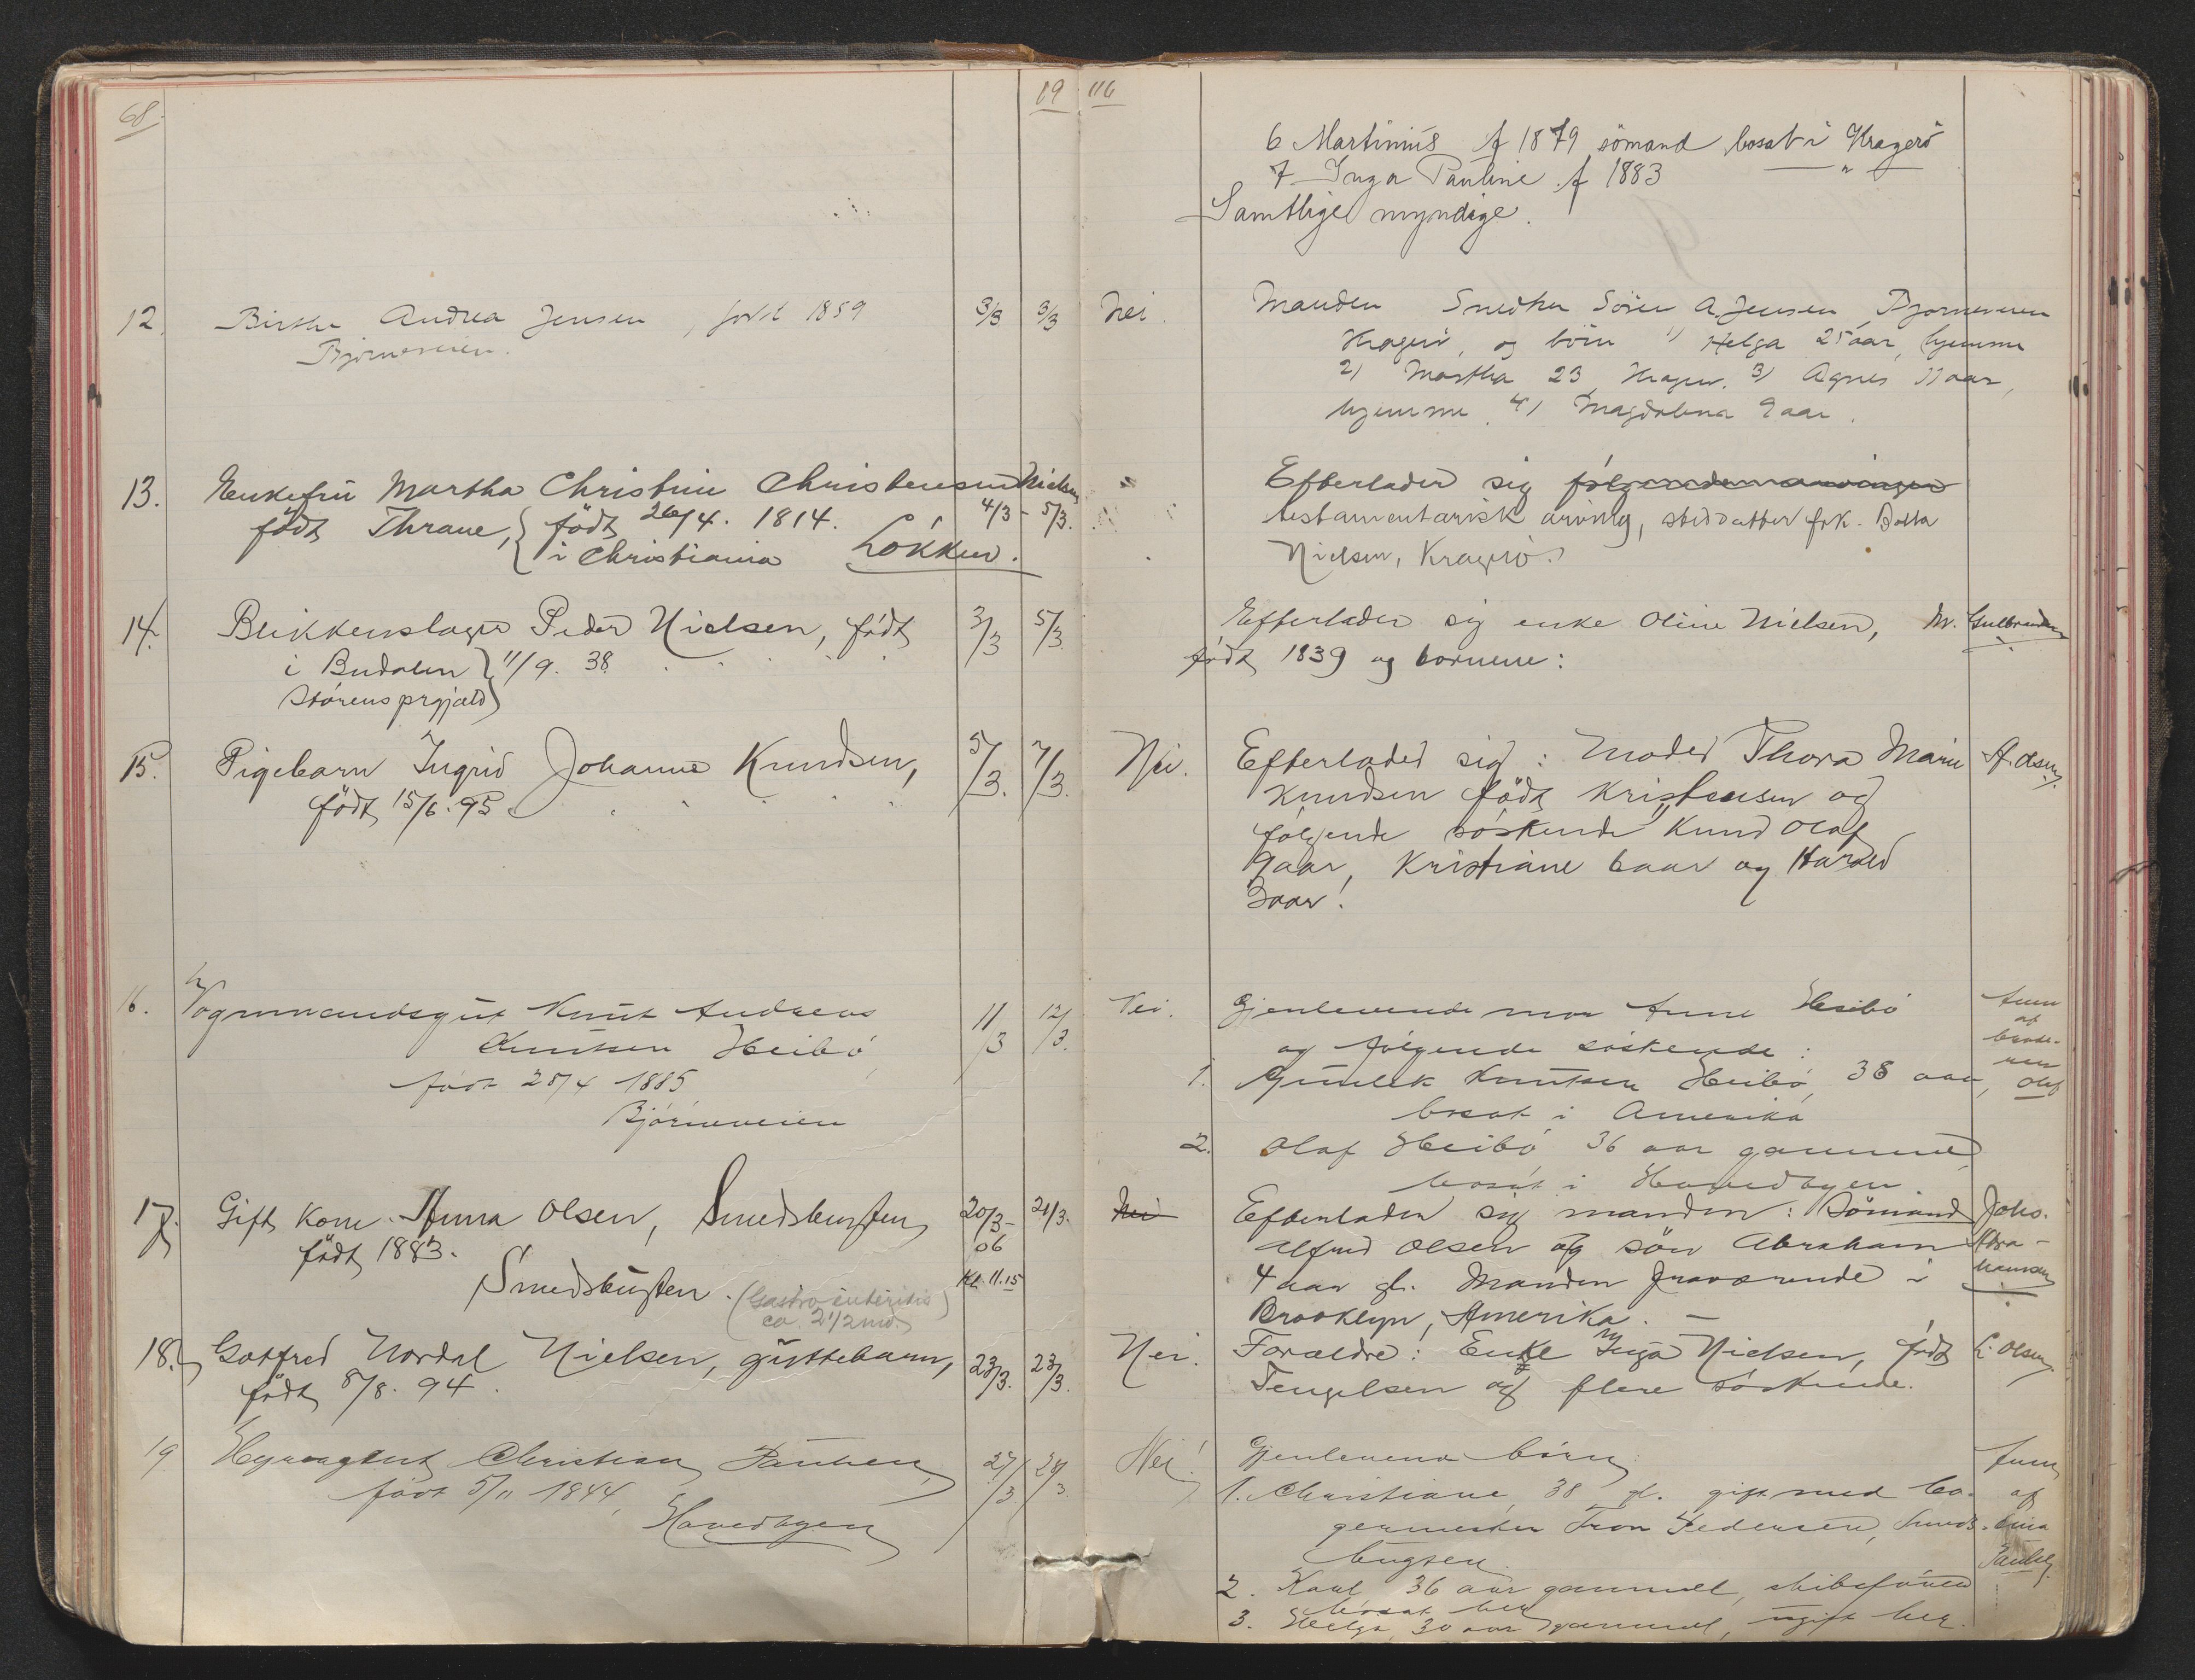 68.
19 06
6 Martinius f 1879 sömand bosat i Kragerö
7 Inga Pauline f 1883 — " —
Samtlige myndige.
12. Birthe Andrea Jensen, født 1859 3/3 3/3 Nei.
Bjørneveien.
Manden Snedker Sören A. Jensen Bjørneveien
Kragerö, og börn 1) Helga 25 aar, hjemme
2) Martha 23, Kragerö. 3) Agnes 11 aar,
hjemme. 4) Magdalena 9 aar.
13. Enkefru Martha Christine Christensen Nielsen
født Thrane, { født 26/4. 1814. 4/3 - 5/3.
i Christiania Løkken.
Efterlader sig følgende arvinger
testamentarisk arving, steddatter frk. Bolla
Nielsen, Kragerø.
14. Blikkenslager Peder Nielsen, født 3/3 5/3
i Budalen } 11/9. 38.
Størens prgjæld
Efterlader sig enke Oline Nielsen, M. Gulbrandsen
født 1839 og børnene:
15. Pigebarn Ingrid Johanne Knudsen, 5/3. 7/3. Nei.
født 15/6. 95
Efterlader sig: Moder Thora Marie A. Olsen.
Knudsen født Kristensen og
følgende søskende Knud Olaf
9 aar, Kristiane 6 aar og Harald
3 aar!
16. Vognmandsgut Knut Andreas 11/3 12/3. Nei.
Knutsen Heibø,
født 28/4 1885
Bjørneveien
Gjenlevende mor Anne Heibø
og følgende søskende:
1. Gunlek Knutsen Heibø, 38 aar,
bosat i Amerika
2. Olaf Heibø 36 aar gammel,
bosat i Hovedbyen
Anm
af
brode-
ren
Olaf
17. Gift kone Anna Olsen, Smedsbugten 20/3- 21/3. Nei
født 1883. 06
Smedsbugten. Kl. 11.15
(Gastro-enteritis
ca. 2 1/2 md.)
Efterlader sig manden: Sömand
Alfred Olsen og sön Abraham
4 aar gl. Manden fraværende i
Brooklyn, Amerika. —
Johs.
Abra-
hamsen
18. Gotfred Nordal Nielsen, guttebarn, 23/3. 23/3. Nei.
født 8/8. 94.
Forældre: Enke Inga Nielsen, født L. Olsen.
Tengelsen og flere søskende.
19 Christian Paulsen, 27/3 28/3. Nei!
født 5/11 1844,
Hovedbyen
Gjenlevende børn:
1. Christiane, 38 gl. gift med bo-
germester Tron Pedersen, Smeds-
bugten.
2. Karl 36 aar gammel, skibsfører
bosat her
3. Helga, 30 aar gammel, ugift her.
Anm
af
Paulsen